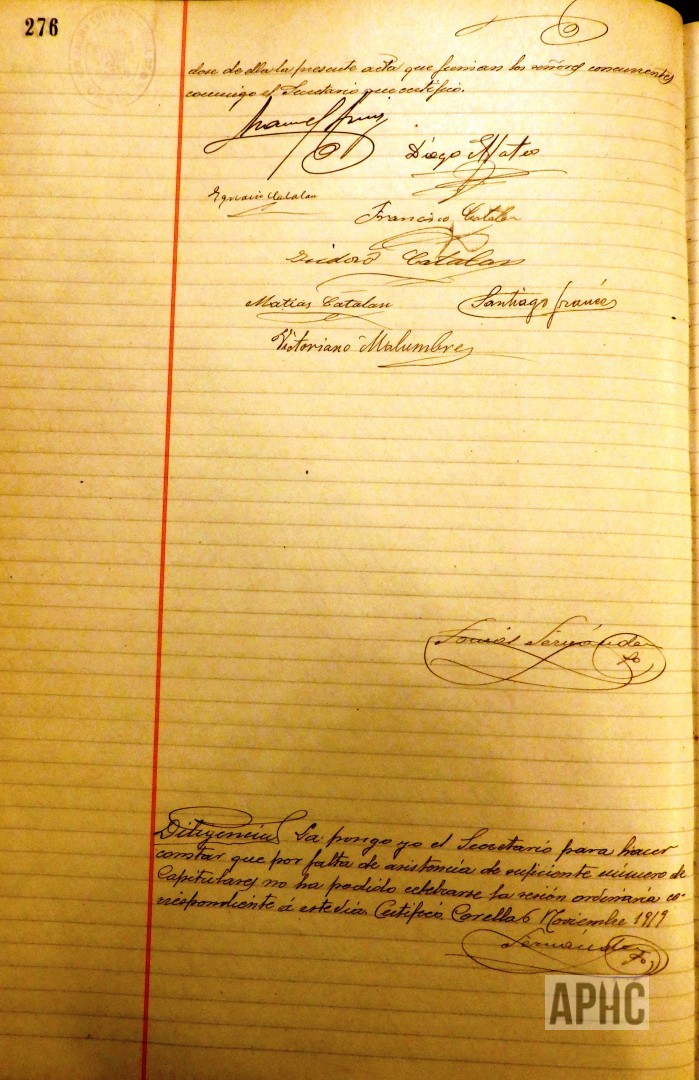 276
dose de ella la presente acta que firman los señores concurrentes
conmigo el Secretario que certifico.
Diego Mateo
Ygnacio Catalan
Francisco Catalan
Isidoro Catalan
Matias Catalan
Santiago Francés
Victoriano Malumbres
Tomás Fernández
Diligencia La pongo yo el Secretario para hacer
constar que por falta de asistencia de suficiente número de
Capitulares no ha podido celebrarse la sesión ordinaria co-
rrespondiente á este dia. Certifico. Corella 6 Noviembre 1919
Fernández
APHC